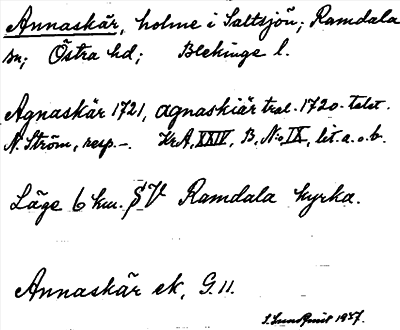 Annaskär, holme i Saltsjön; Ramdala
sn; Östra hd; Blekinge l.
Agnaskär 1721, agnaskiär tral. 1720-talet.
N. Ström, resp. –. KrA, XXIV, B, N:o IX, lit. a. o. b.
Läge 6 km. SV Ramdala kyrka.
Annaskär ek, G. 11.
S. Lundquist 1927.